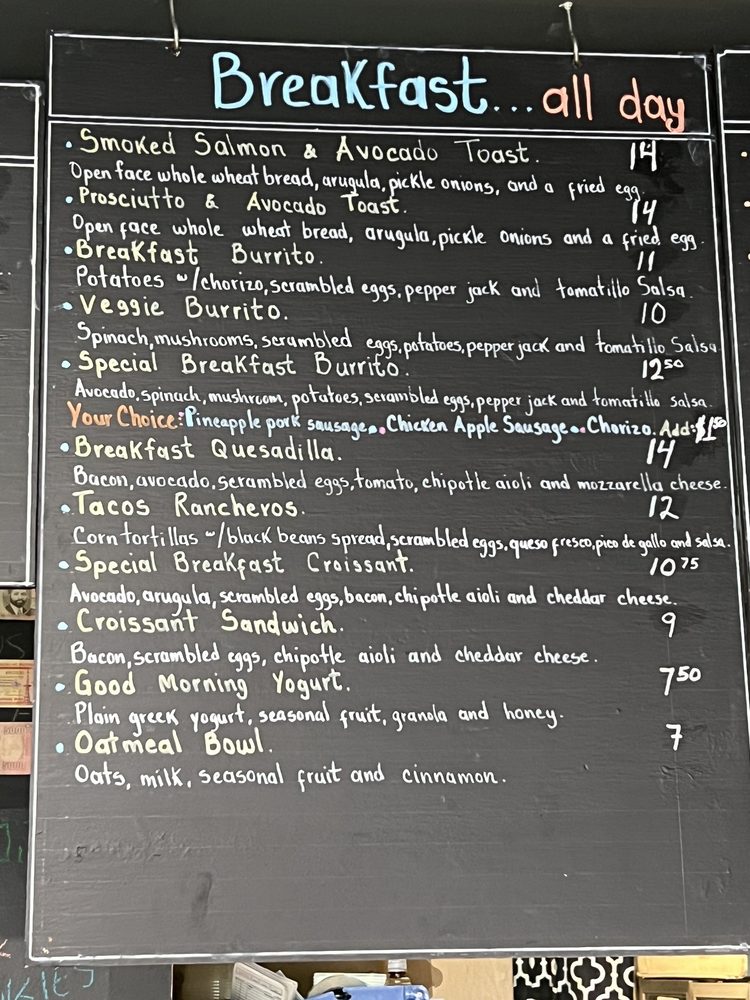 Breakfast... all day
• Smoked Salmon & Avocado Toast. 14
Open face whole wheat bread, arugula, pickle onions, and a fried egg.
• Prosciutto & Avocado Toast. 14
Open face whole wheat bread, arugula, pickle onions and a fried egg.
• Breakfast Burrito. 11
Potatoes w/chorizo, scrambled eggs, pepper jack and tomatillo Salsa.
• Veggie Burrito. 10
Spinach, mushrooms, scrambled eggs, potatoes, pepper jack and tomatillo Salsa.
• Special Breakfast Burrito. 12⁵⁰
Avocado, spinach, mushroom, potatoes, scrambled eggs, pepper jack and tomatillo salsa.
Your Choice: Pineapple pork sausage.. Chicken Apple Sausage.. Chorizo. Add: $1⁵⁰
• Breakfast Quesadilla. 14
Bacon, avocado, scrambled eggs, tomato, chipotle aioli and mozzarella cheese.
• Tacos Rancheros. 12
Corn tortillas w/black beans spread, scrambled eggs, queso fresco, pico de gallo and salsa.
• Special Breakfast Croissant. 10⁷⁵
Avocado, arugula, scrambled eggs, bacon, chipotle aioli and cheddar cheese.
• Croissant Sandwich. 9
Bacon, scrambled eggs, chipotle aioli and cheddar cheese.
• Good Morning Yogurt. 7⁵⁰
Plain greek yogurt, seasonal fruit, granola and honey.
• Oatmeal Bowl. 7
Oats, milk, seasonal fruit and cinnamon.